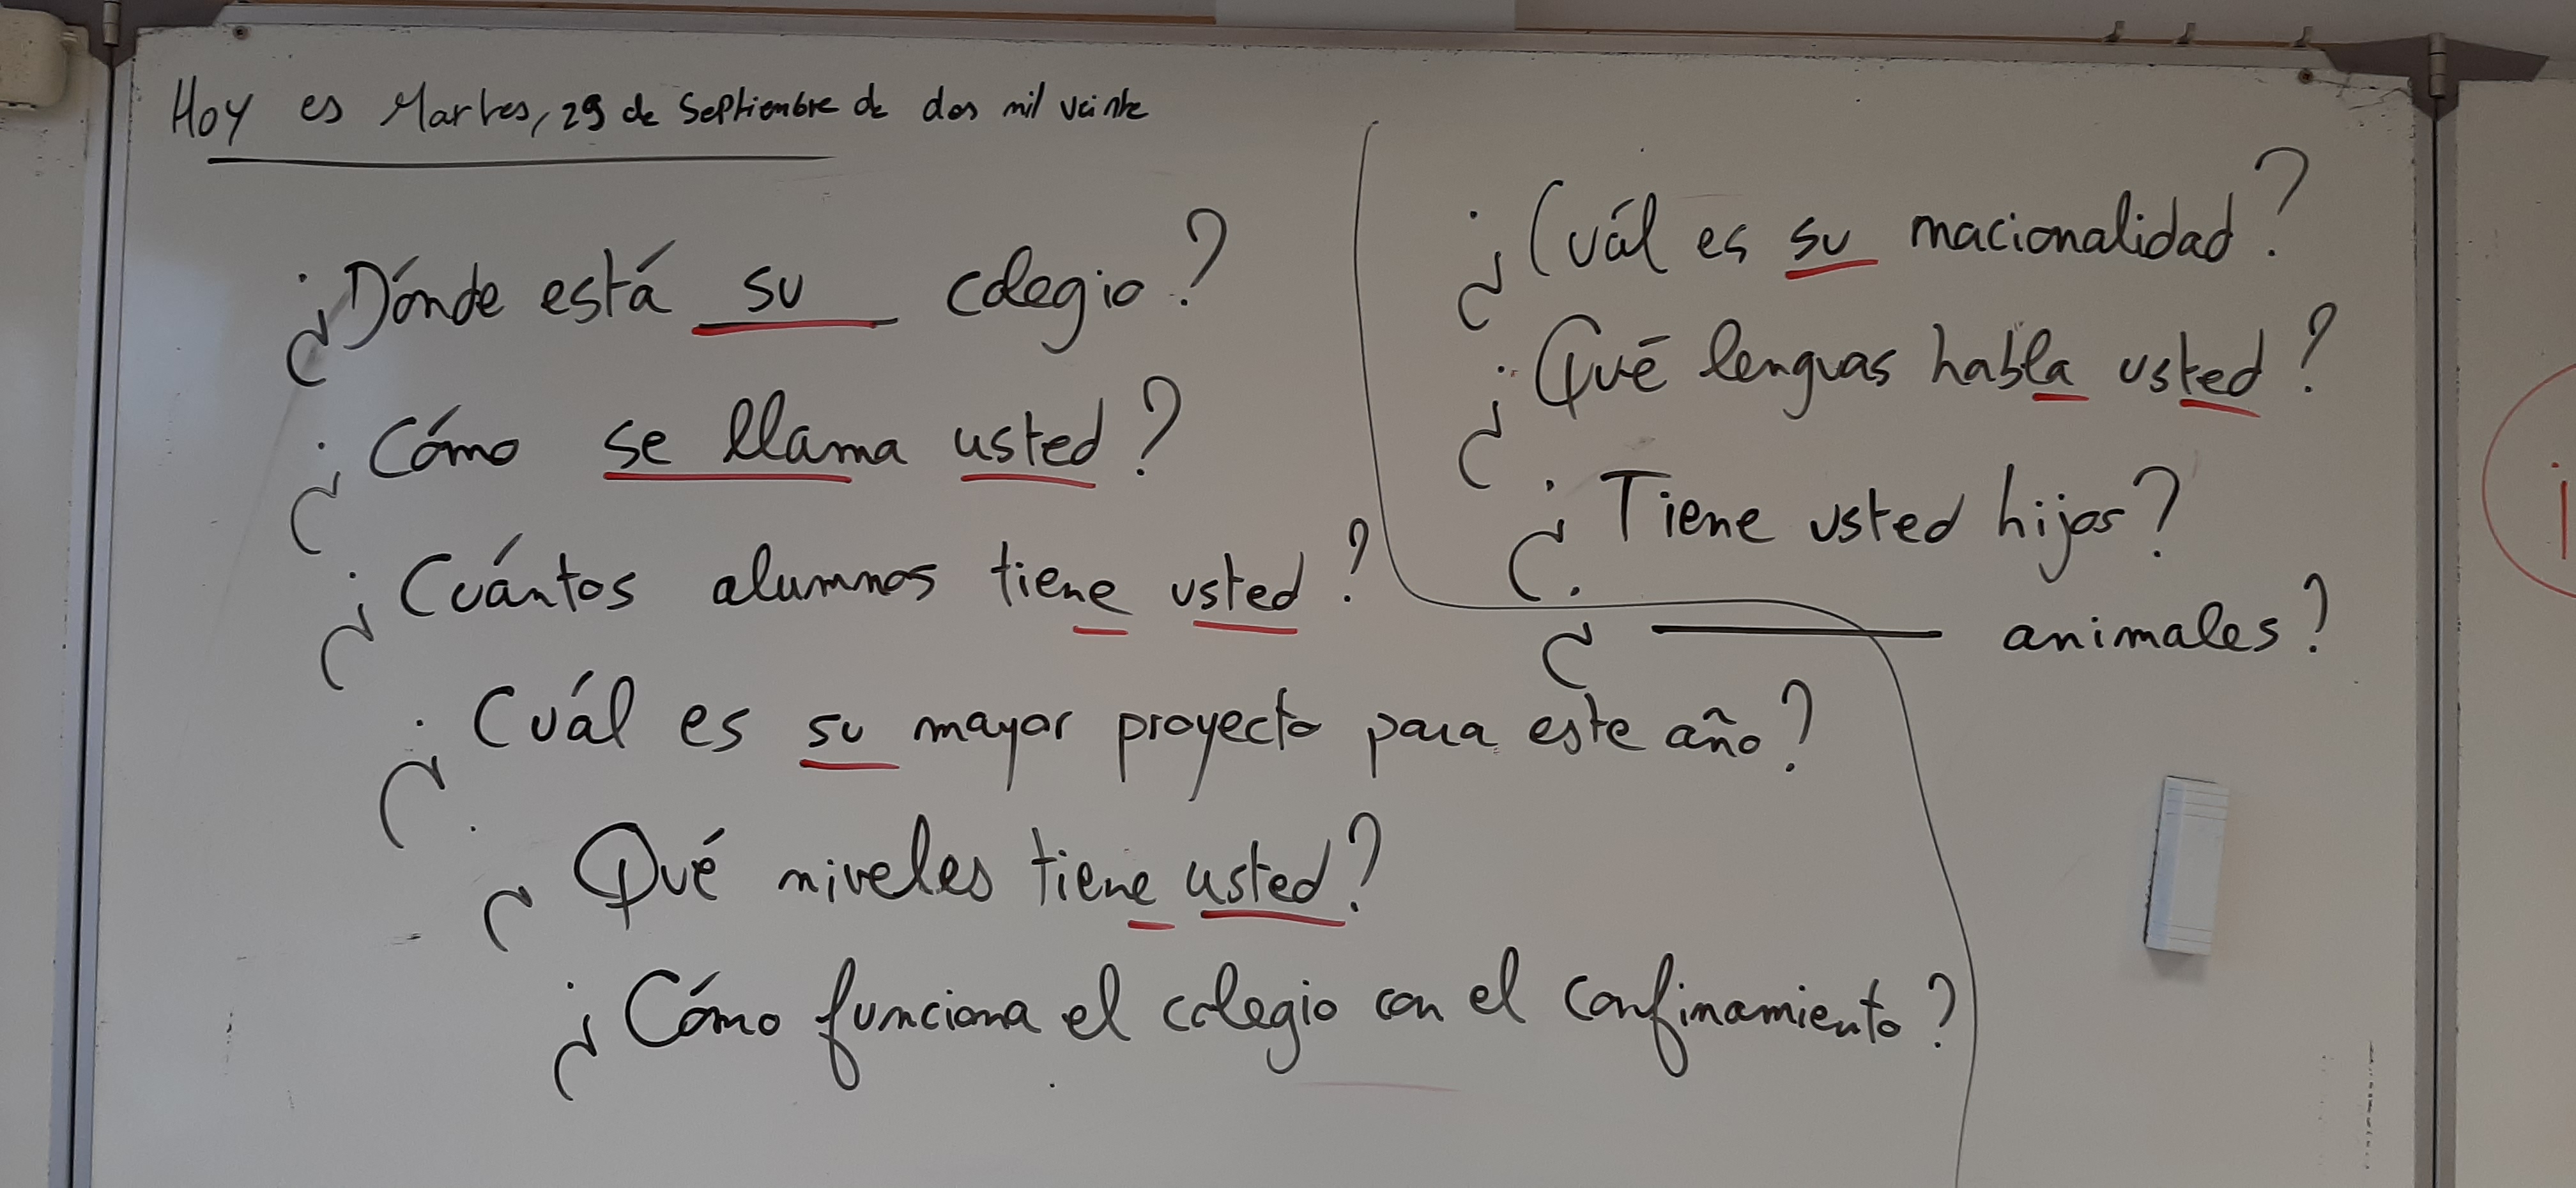 Hoy es Martes, 29 de Septiembre de dos mil veinte
¿Dónde está su colegio?
¿Cómo se llama usted?
¿Cuántos alumnos tiene usted?
¿Cuál es su mayor proyecto para este año?
¿Qué niveles tiene usted?
¿Cómo funciona el colegio con el confinamiento?
¿Cuál es su nacionalidad?
¿Qué lenguas habla usted?
¿Tiene usted hijos?
¿ animales?